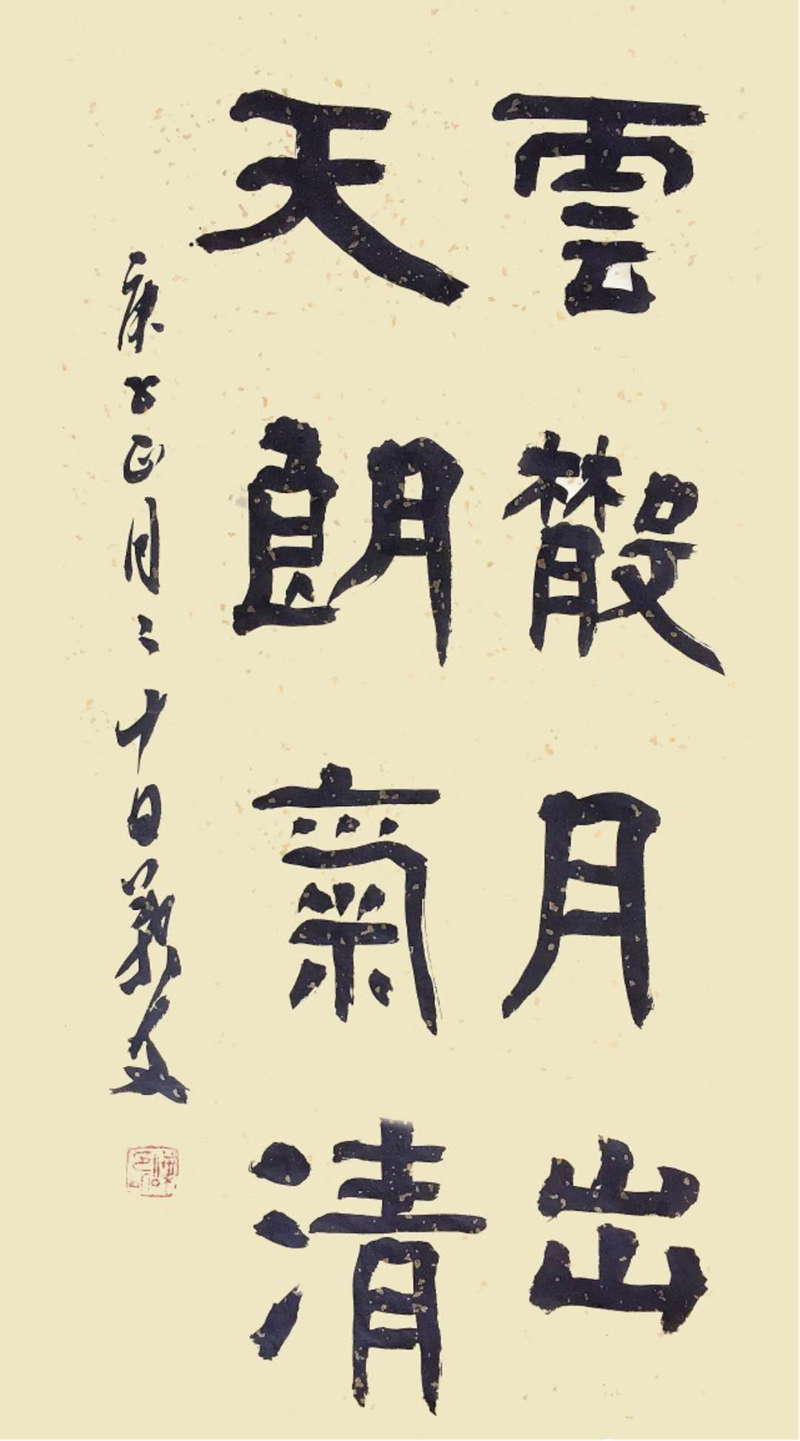 雲散月出
天朗氣清
庚子正月二十日